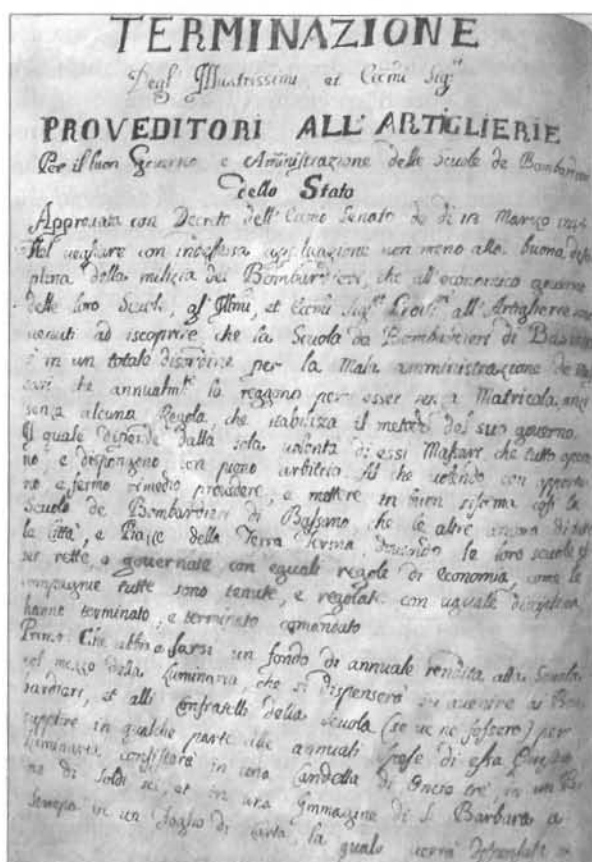 TERMINAZIONE
Degl' Illustrissimi et Eccmi Sigri
PROVEDITORI ALL' ARTIGLIERIE
Per il buon Governo e Amministrazione delle Scuole de Bombardieri
dello Stato
Approvata con Decreto dell' Eccmo Senato di Marzo
Nel con indefessa non meno alla buona
plina della milizia dei Bombardieri, che all' economico governo
delle loro Scuole, gl' Illmi, et Eccmi Sigri all' Artiglierie
venuti ad iscoprire che la Scuola da Bombardieri di
è in un totale disordine per la Mala amministrazione de
che annualmte la reggono per esser senza Matricola, anzi
senza alcuna Regola, che stabilisca il metodo del suo governo.
Il quale dipende dalla sola volontà di essi Massari che tutto
no, e dispongono con pieno arbitrio. Al che volendo con
no e fermo rimedio provedere, e mettere in buon riforma così la
Scuola de Bombardieri di Bassano, che le altre ancora di
le Città, e Piazze della Terra ferma dovendo le loro scuole
ser rette, e governate con eguale regole di economia, come le
compagnie tutte sono tenute, e regolate con uguale
hanno terminato, e terminando comandato
Primo: Che abbia farsi un fondo di annuale rendita alla Scuola
nel mezzo della Luminaria, che si dispenserà in avenire ai
bardieri, et alli Confratelli della Scuola (se ve ne fossero) per
supplire in qualche parte alle annuali spese di essa
Luminaria consisterà in una Candella di Oncie tre, in un
ne di Soldi sei, et in una Immagine di S. Barbara a
Stampa in un foglio di Carta, la quale verrà